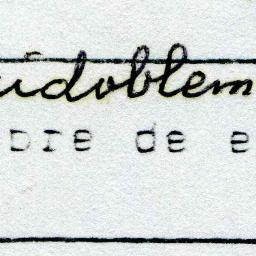 uidoblem
bre de e